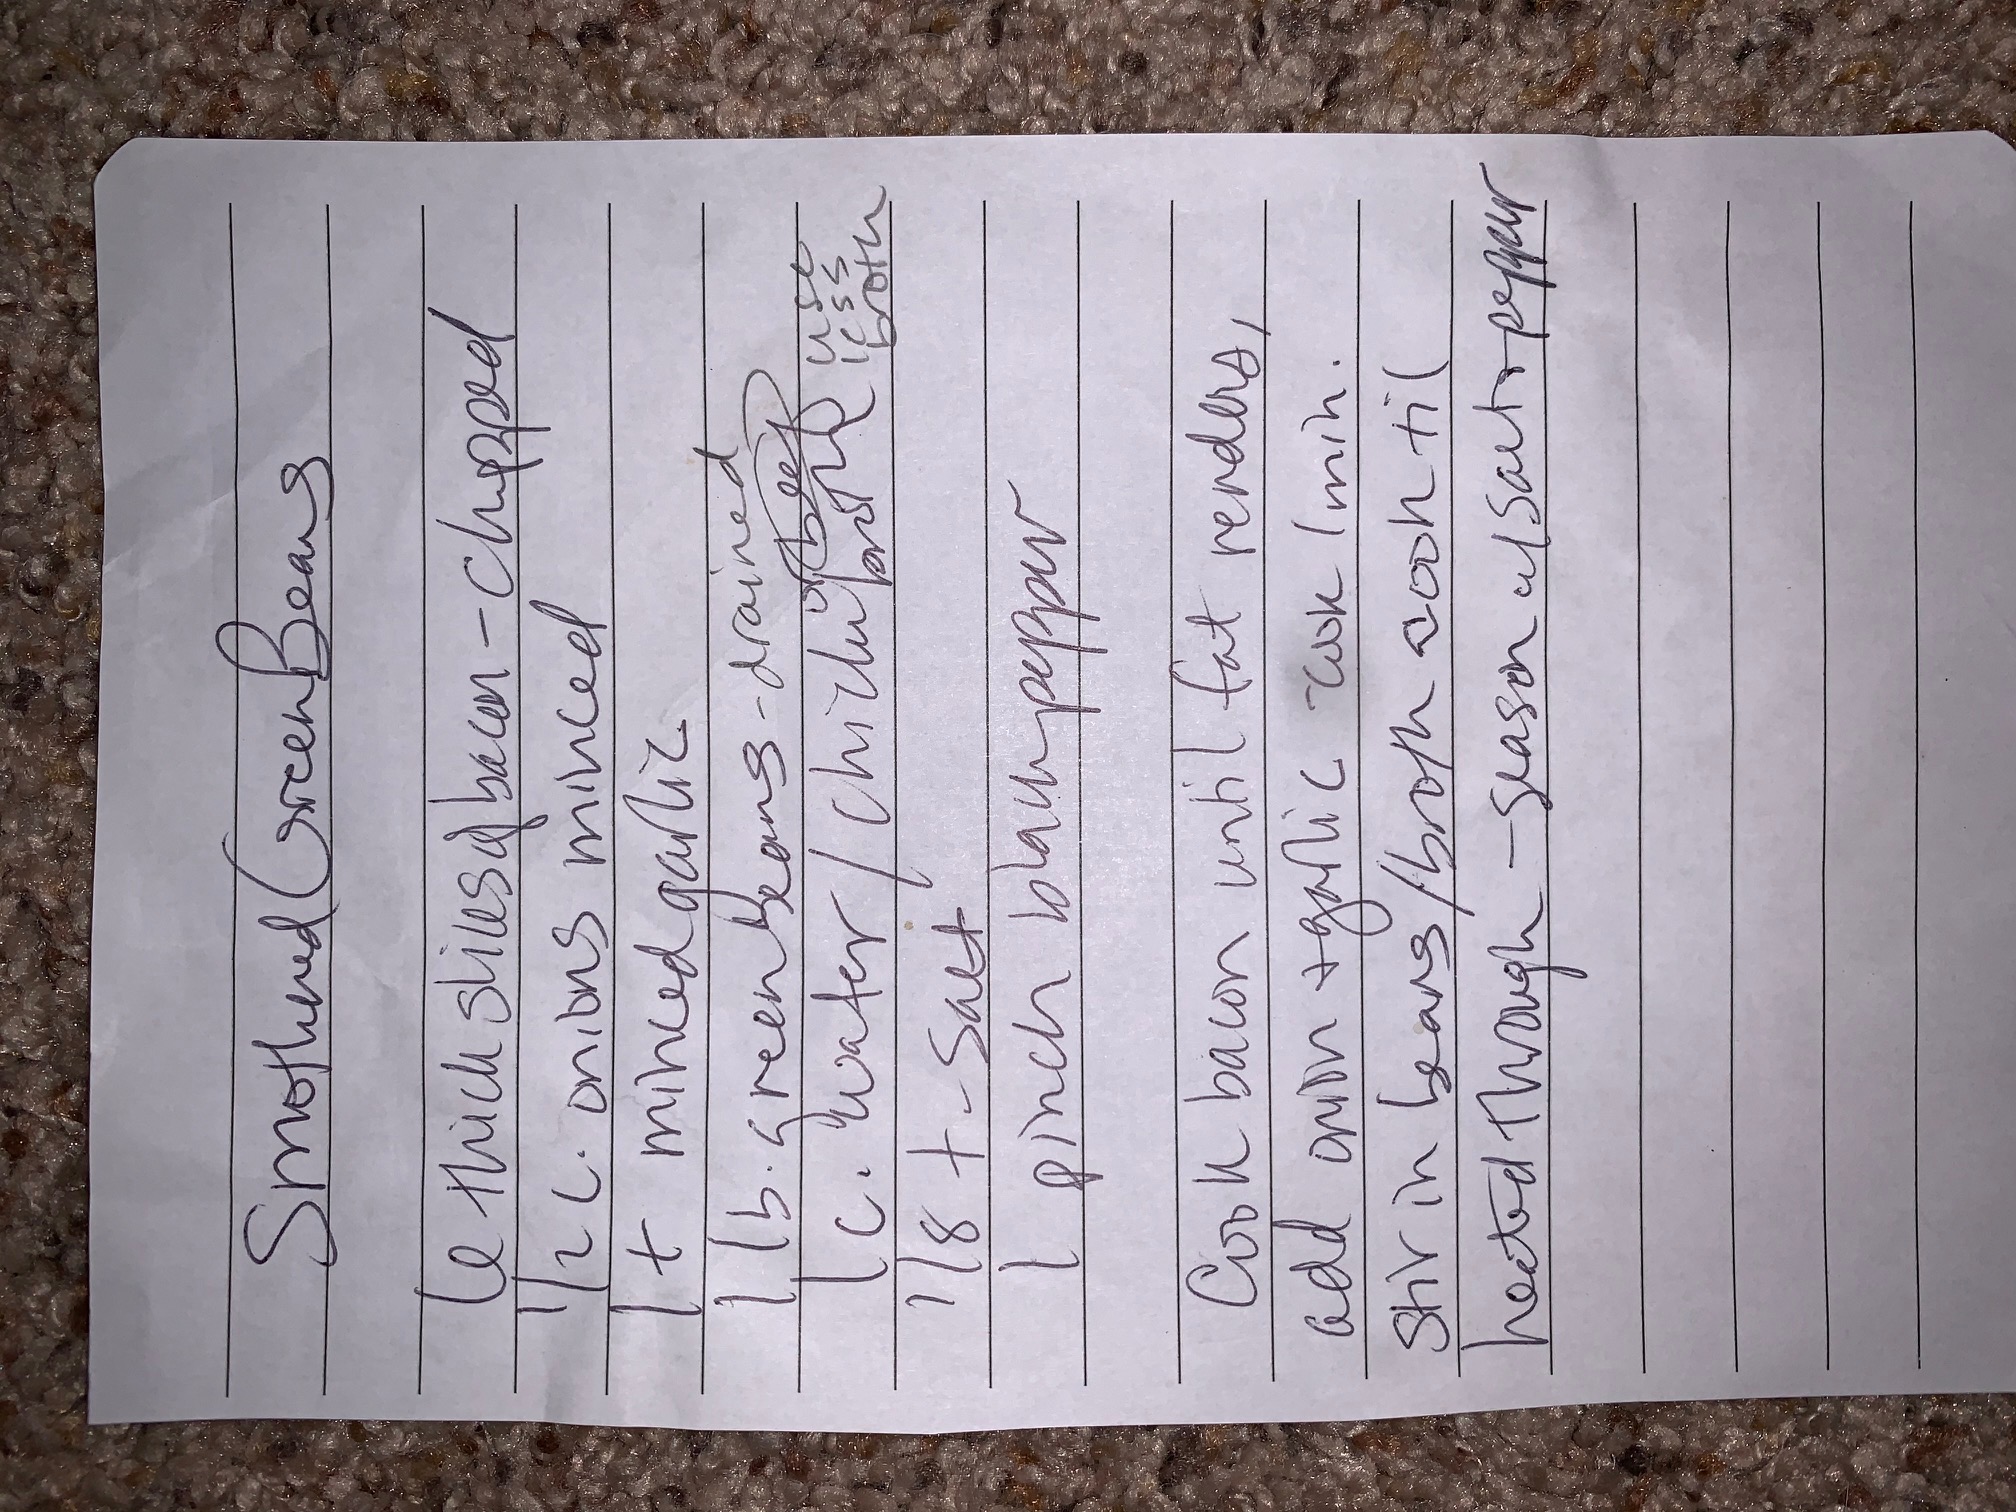 Smothered Green Beans
6 thick slices of bacon - chopped
1/2 c. onions minced
1 t minced garlic
1 lb. green beans - drained
or beef
1 c. water / chicken broth use less broth
1/8 t - Salt
1 pinch black pepper
Cook bacon until fat renders,
add onion + garlic - cook 1 min.
Stir in beans/broth cook til
heated through - season w/ Salt + pepper